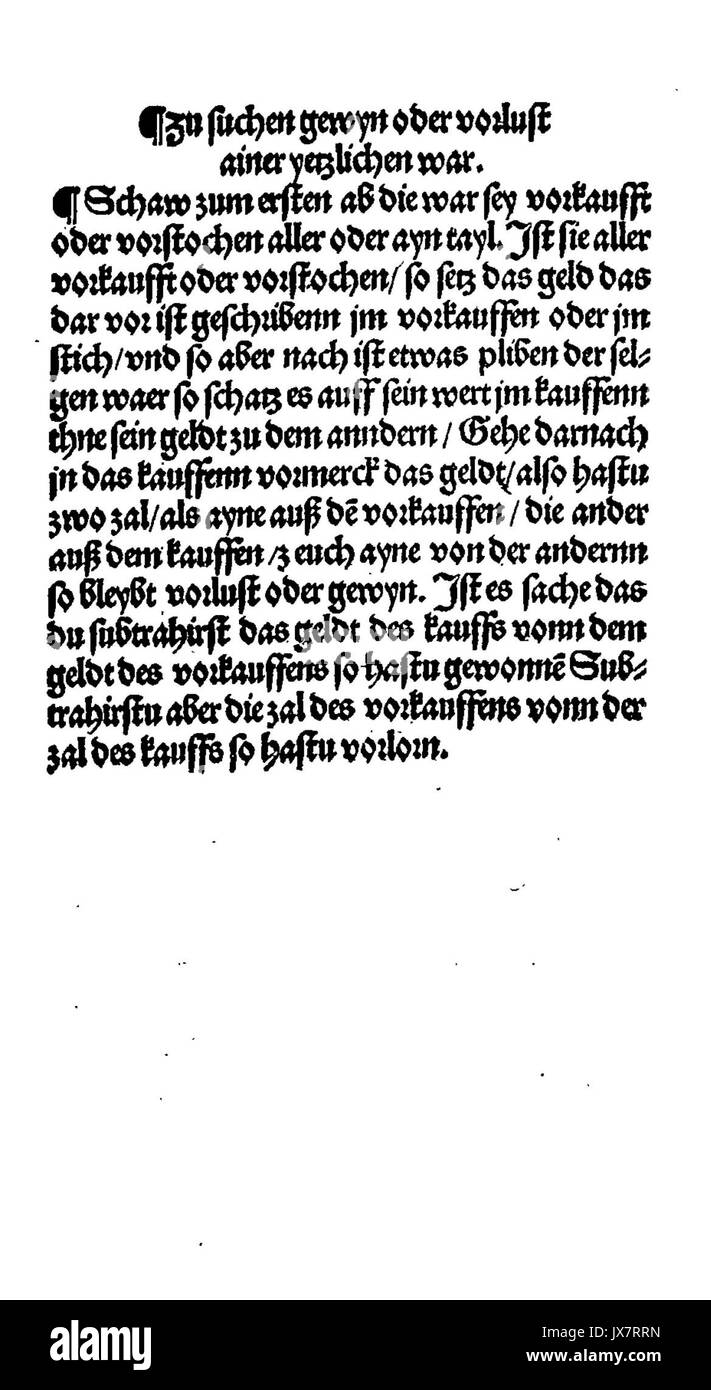 ¶ Zu suchen gewyn oder vorlust
ainer yetzlichen war.
¶ Schaw zum ersten ab die war sey vorkaufft
oder vorstochen aller oder ayn tayl. Ist sie aller
vorkaufft oder vorstochen/ so setz das geld das
dar vor ist geschribenn jm vorkauffen oder jm
stich/ vnd so aber nach ist etwas pliben der sel⸗
gen waer so schatz es auff sein wert jm kauffenn
thne sein geldt zu dem anndern/ Gehe darnach
jn das kauffenn vormerck das geldt/ also hastu
zwo zal/ als ayne auß dē vorkauffen/ die ander
auß dem kauffen/ zeuch ayne von der andernn
so bleybt vorlust oder gewyn. Ist es sache das
du subtrahirst das geldt des kauffs vonn dem
geldt des vorkauffens so hastu gewonnē Sub⸗
trahirstu aber die zal des vorkauffens vonn der
zal des kauffs so hastu vorlorn.
alamy
Image ID: JX7RRN
www.alamy.com